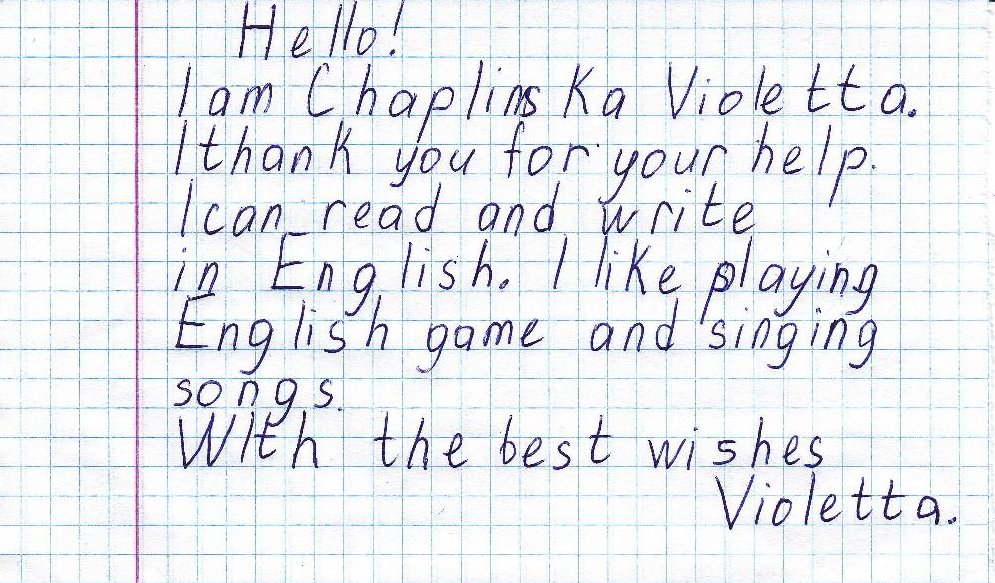 Hello!
I am Chaplinska Violetta.
I thank you for your help.
I can read and write
in English. I like playing
English game and singing
songs.
With the best wishes
Violetta.